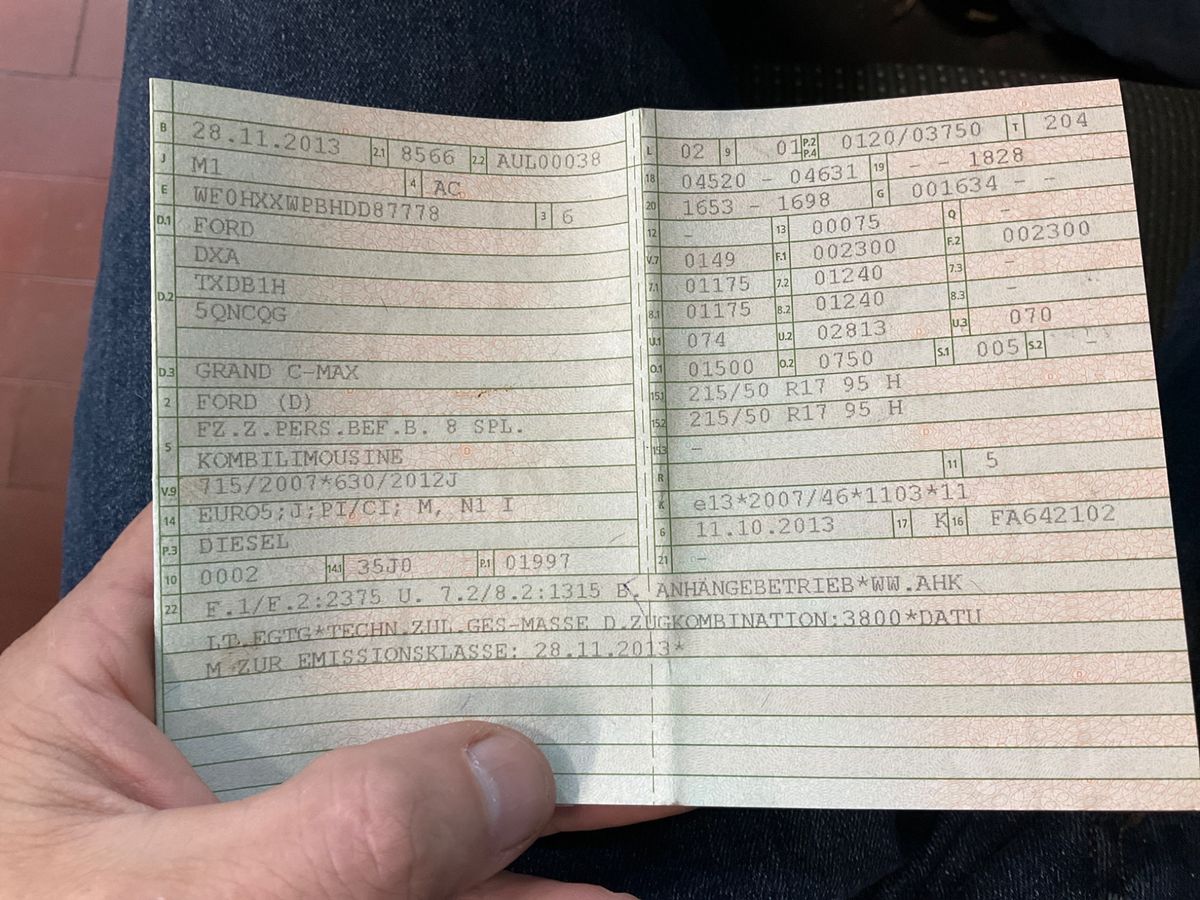 B 28.11.2013 2.1 8566 2.2 AUL00038
J M1 4 AC
E WF0HXXWPBHDD87778 3 6
D.1 FORD
DXA
D.2 TXDB1H
5QNCQG
D.3 GRAND C-MAX
2 FORD (D)
FZ.Z.PERS.BEF.B. 8 SPL.
5 KOMBILIMOUSINE
V.9 715/2007*630/2012J
14 EURO5;J;PI/CI; M, N1 I
P.3 DIESEL
10 0002 14.1 35J0 P.1 01997
L 02 9 01 P.2 P.4 0120/03750 T 204
18 04520 - 04631 19 - - 1828
20 1653 - 1698 G 001634 - -
12 - 13 00075 Q -
V.7 0149 F.1 002300 F.2 002300
7.1 01175 7.2 01240 7.3 -
8.1 01175 8.2 01240 8.3 -
U.1 074 U.2 02813 U.3 070
O.1 01500 O.2 0750 S.1 005 S.2 -
15.1 215/50 R17 95 H
15.2 215/50 R17 95 H
15.3 -
R 11 5
K e13*2007/46*1103*11
6 11.10.2013 17 K 16 FA642102
21 -
22 F.1/F.2:2375 U. 7.2/8.2:1315 B. ANHÄNGEBETRIEB*WW.AHK
LT.EGTG*TECHN.ZUL.GES-MASSE D.ZUGKOMBINATION:3800*DATU
M ZUR EMISSIONSKLASSE: 28.11.2013*